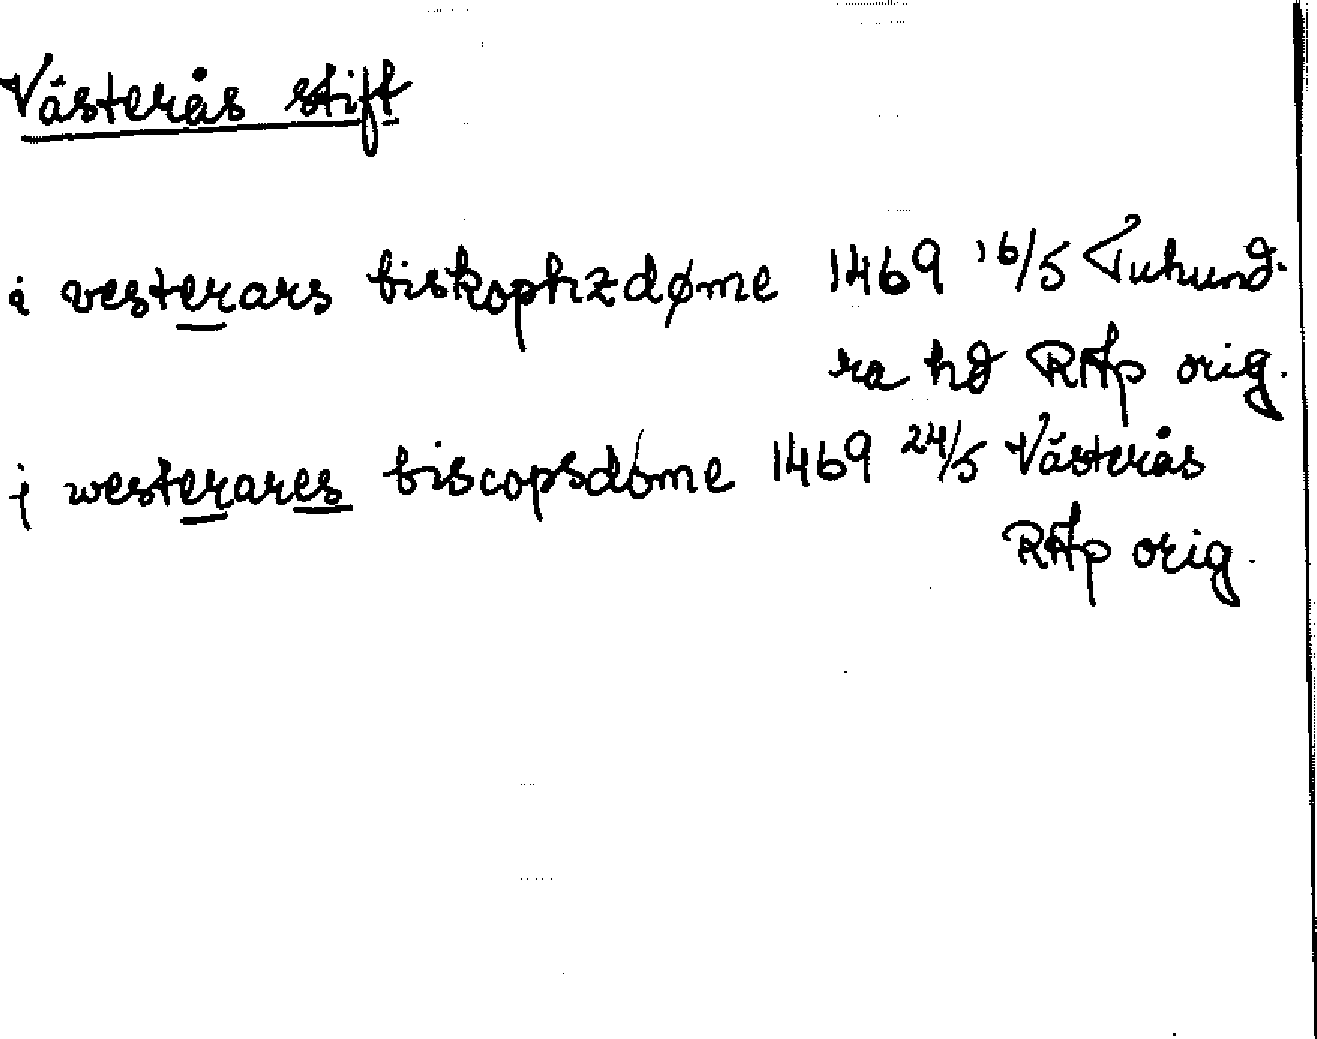 Västerås stift
i vesterars biskophzdøme 1469 16/5 Tuhund-
ra hd RAp orig.
j westerares biscopsdôme 1469 24/5 Västerås
RAp orig.